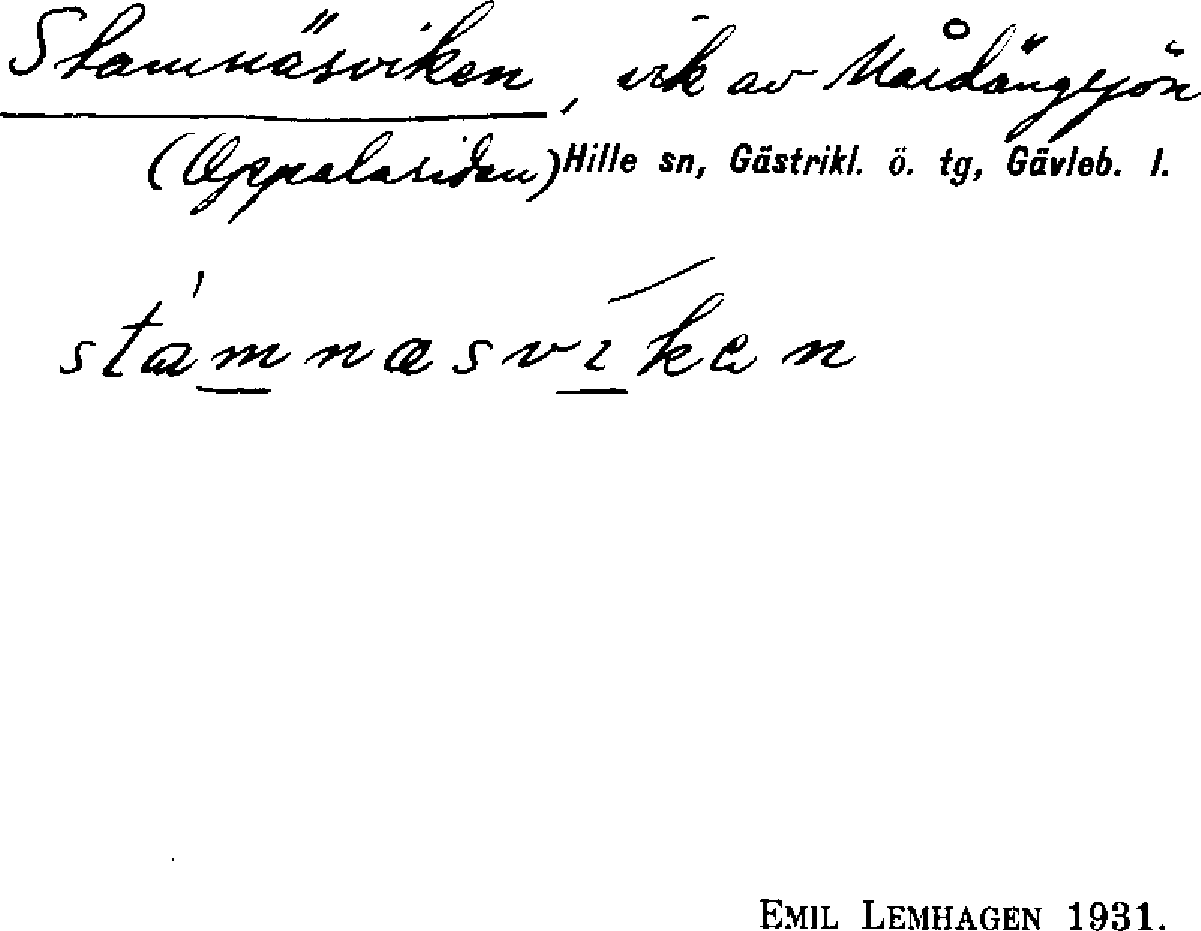 Stamnäsviken, vik av Mårdängsjön
(Oppalasidan) Hille sn, Gästrikl. ö. tg, Gävleb. l.
stamnæsvıken
EMIL LEMHAGEN 1931.